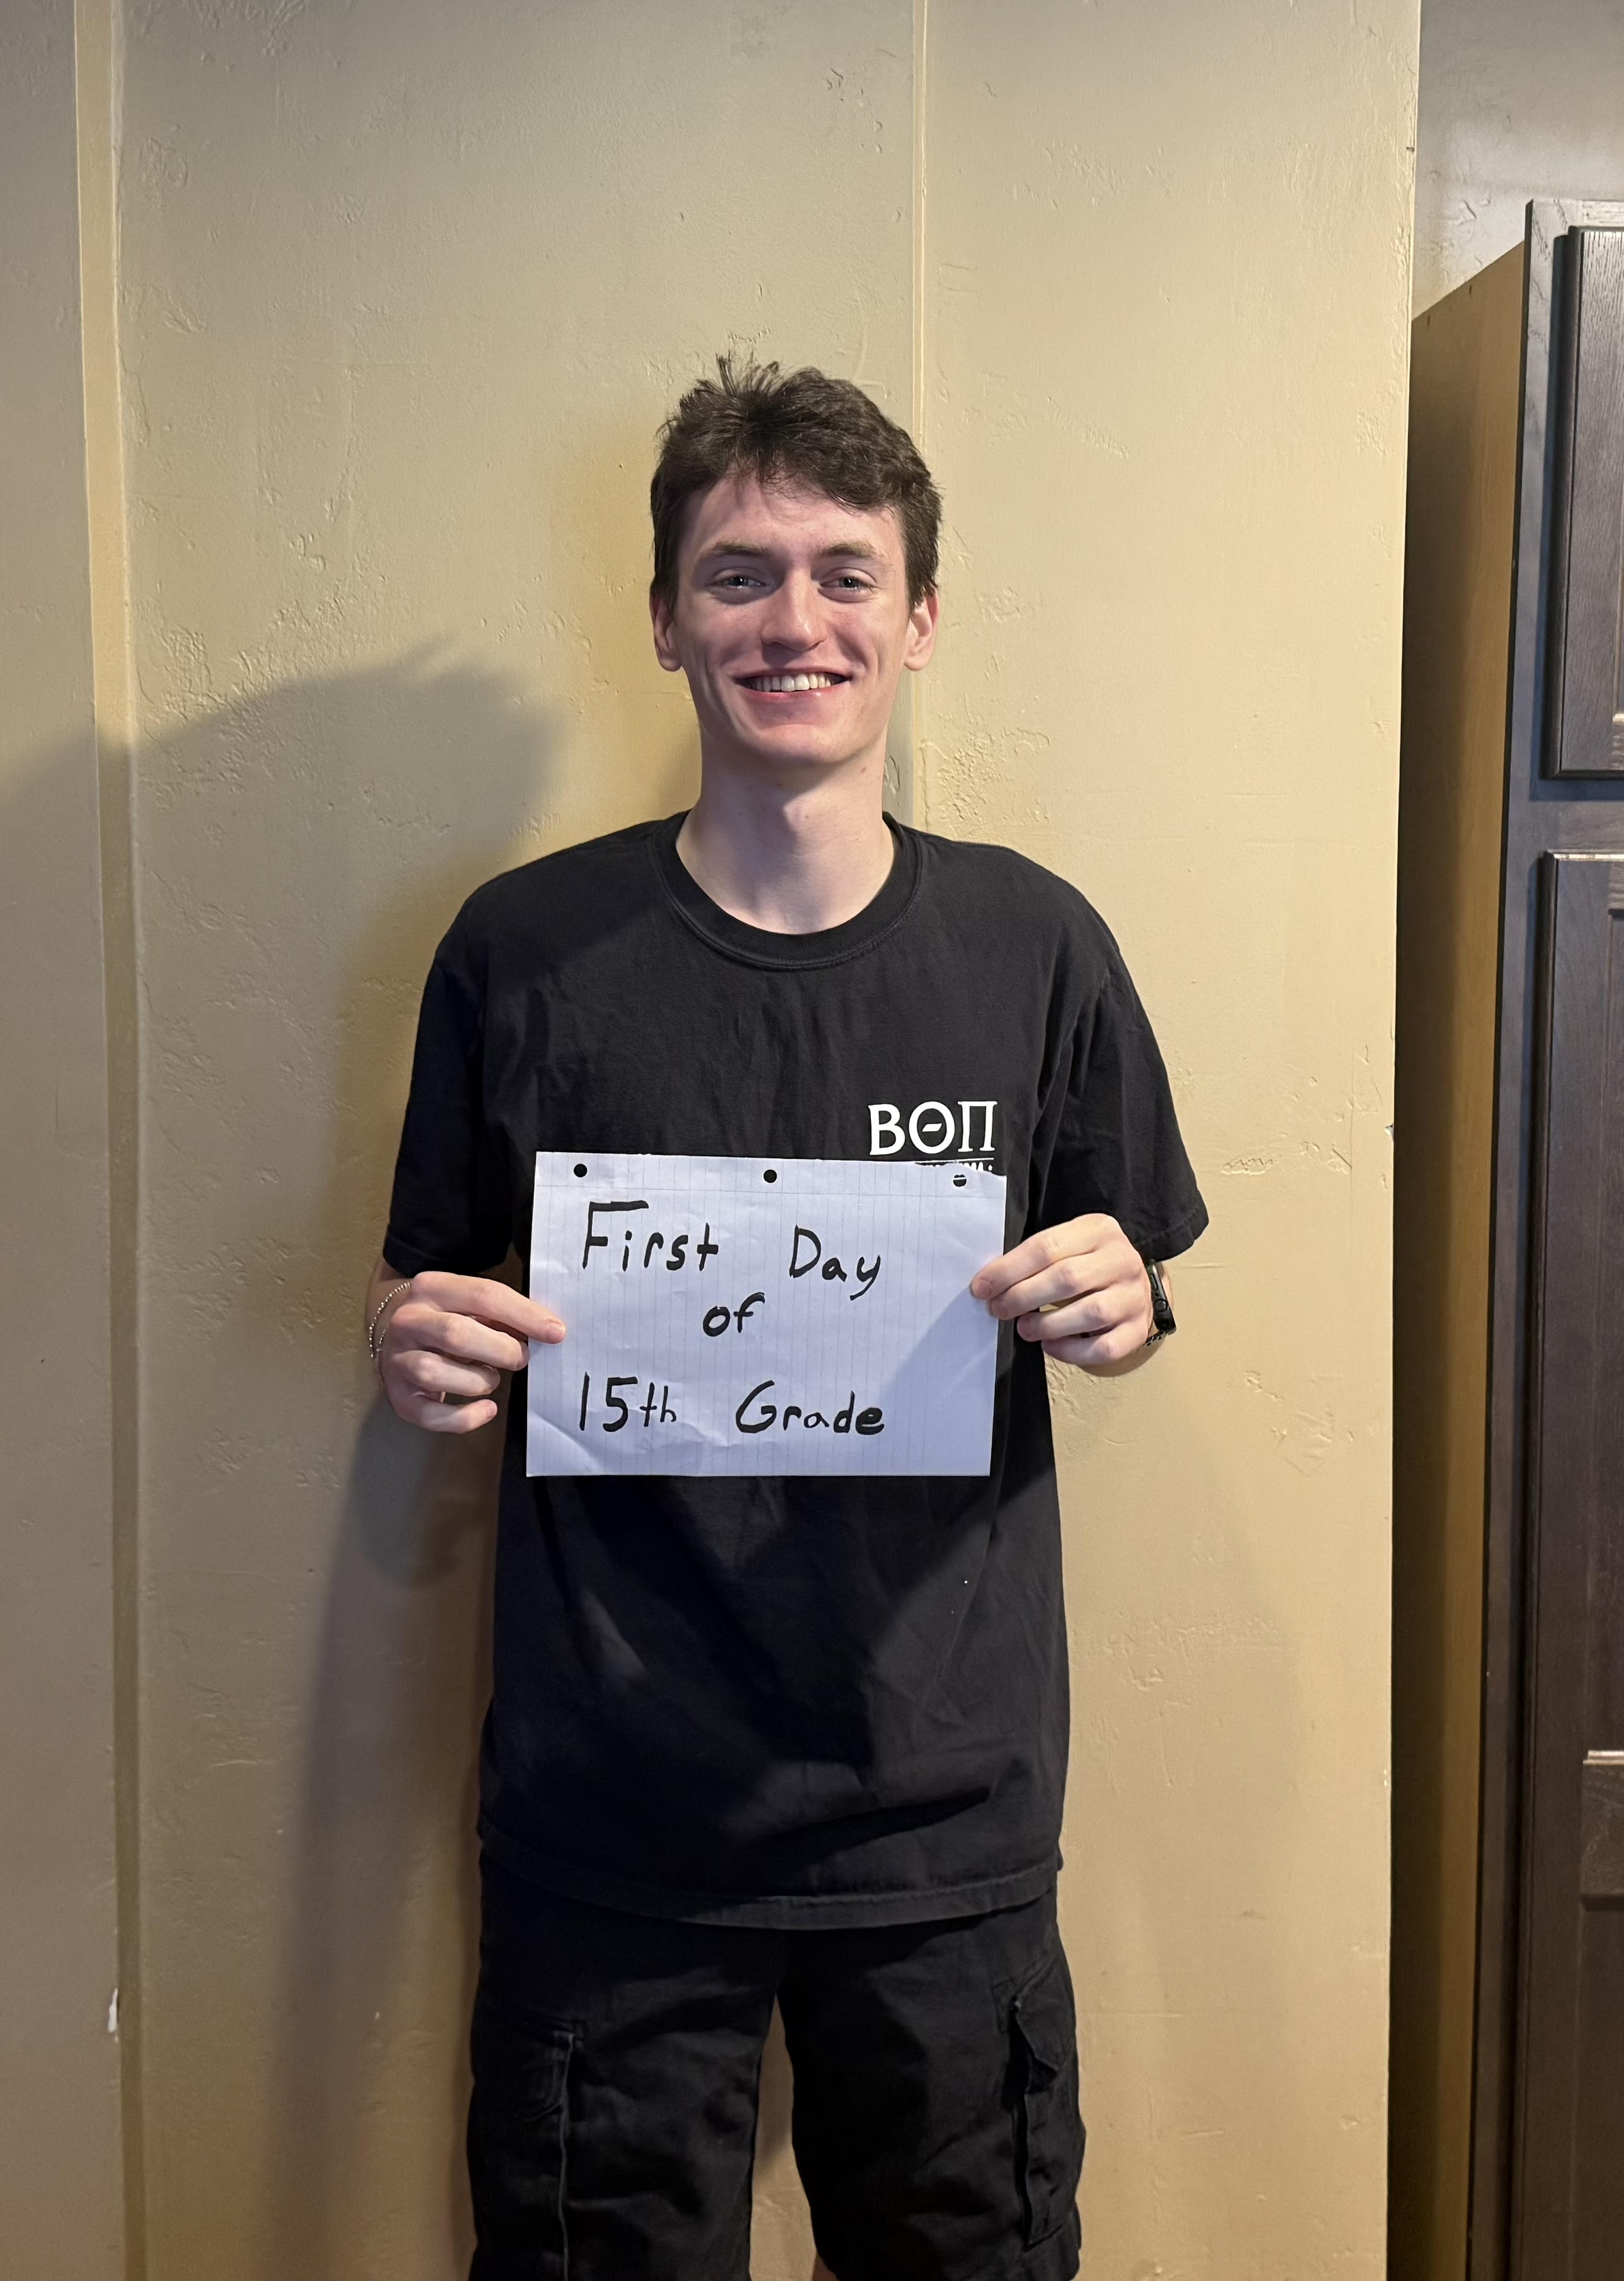 ΒΘΠ
First Day
of
15th Grade